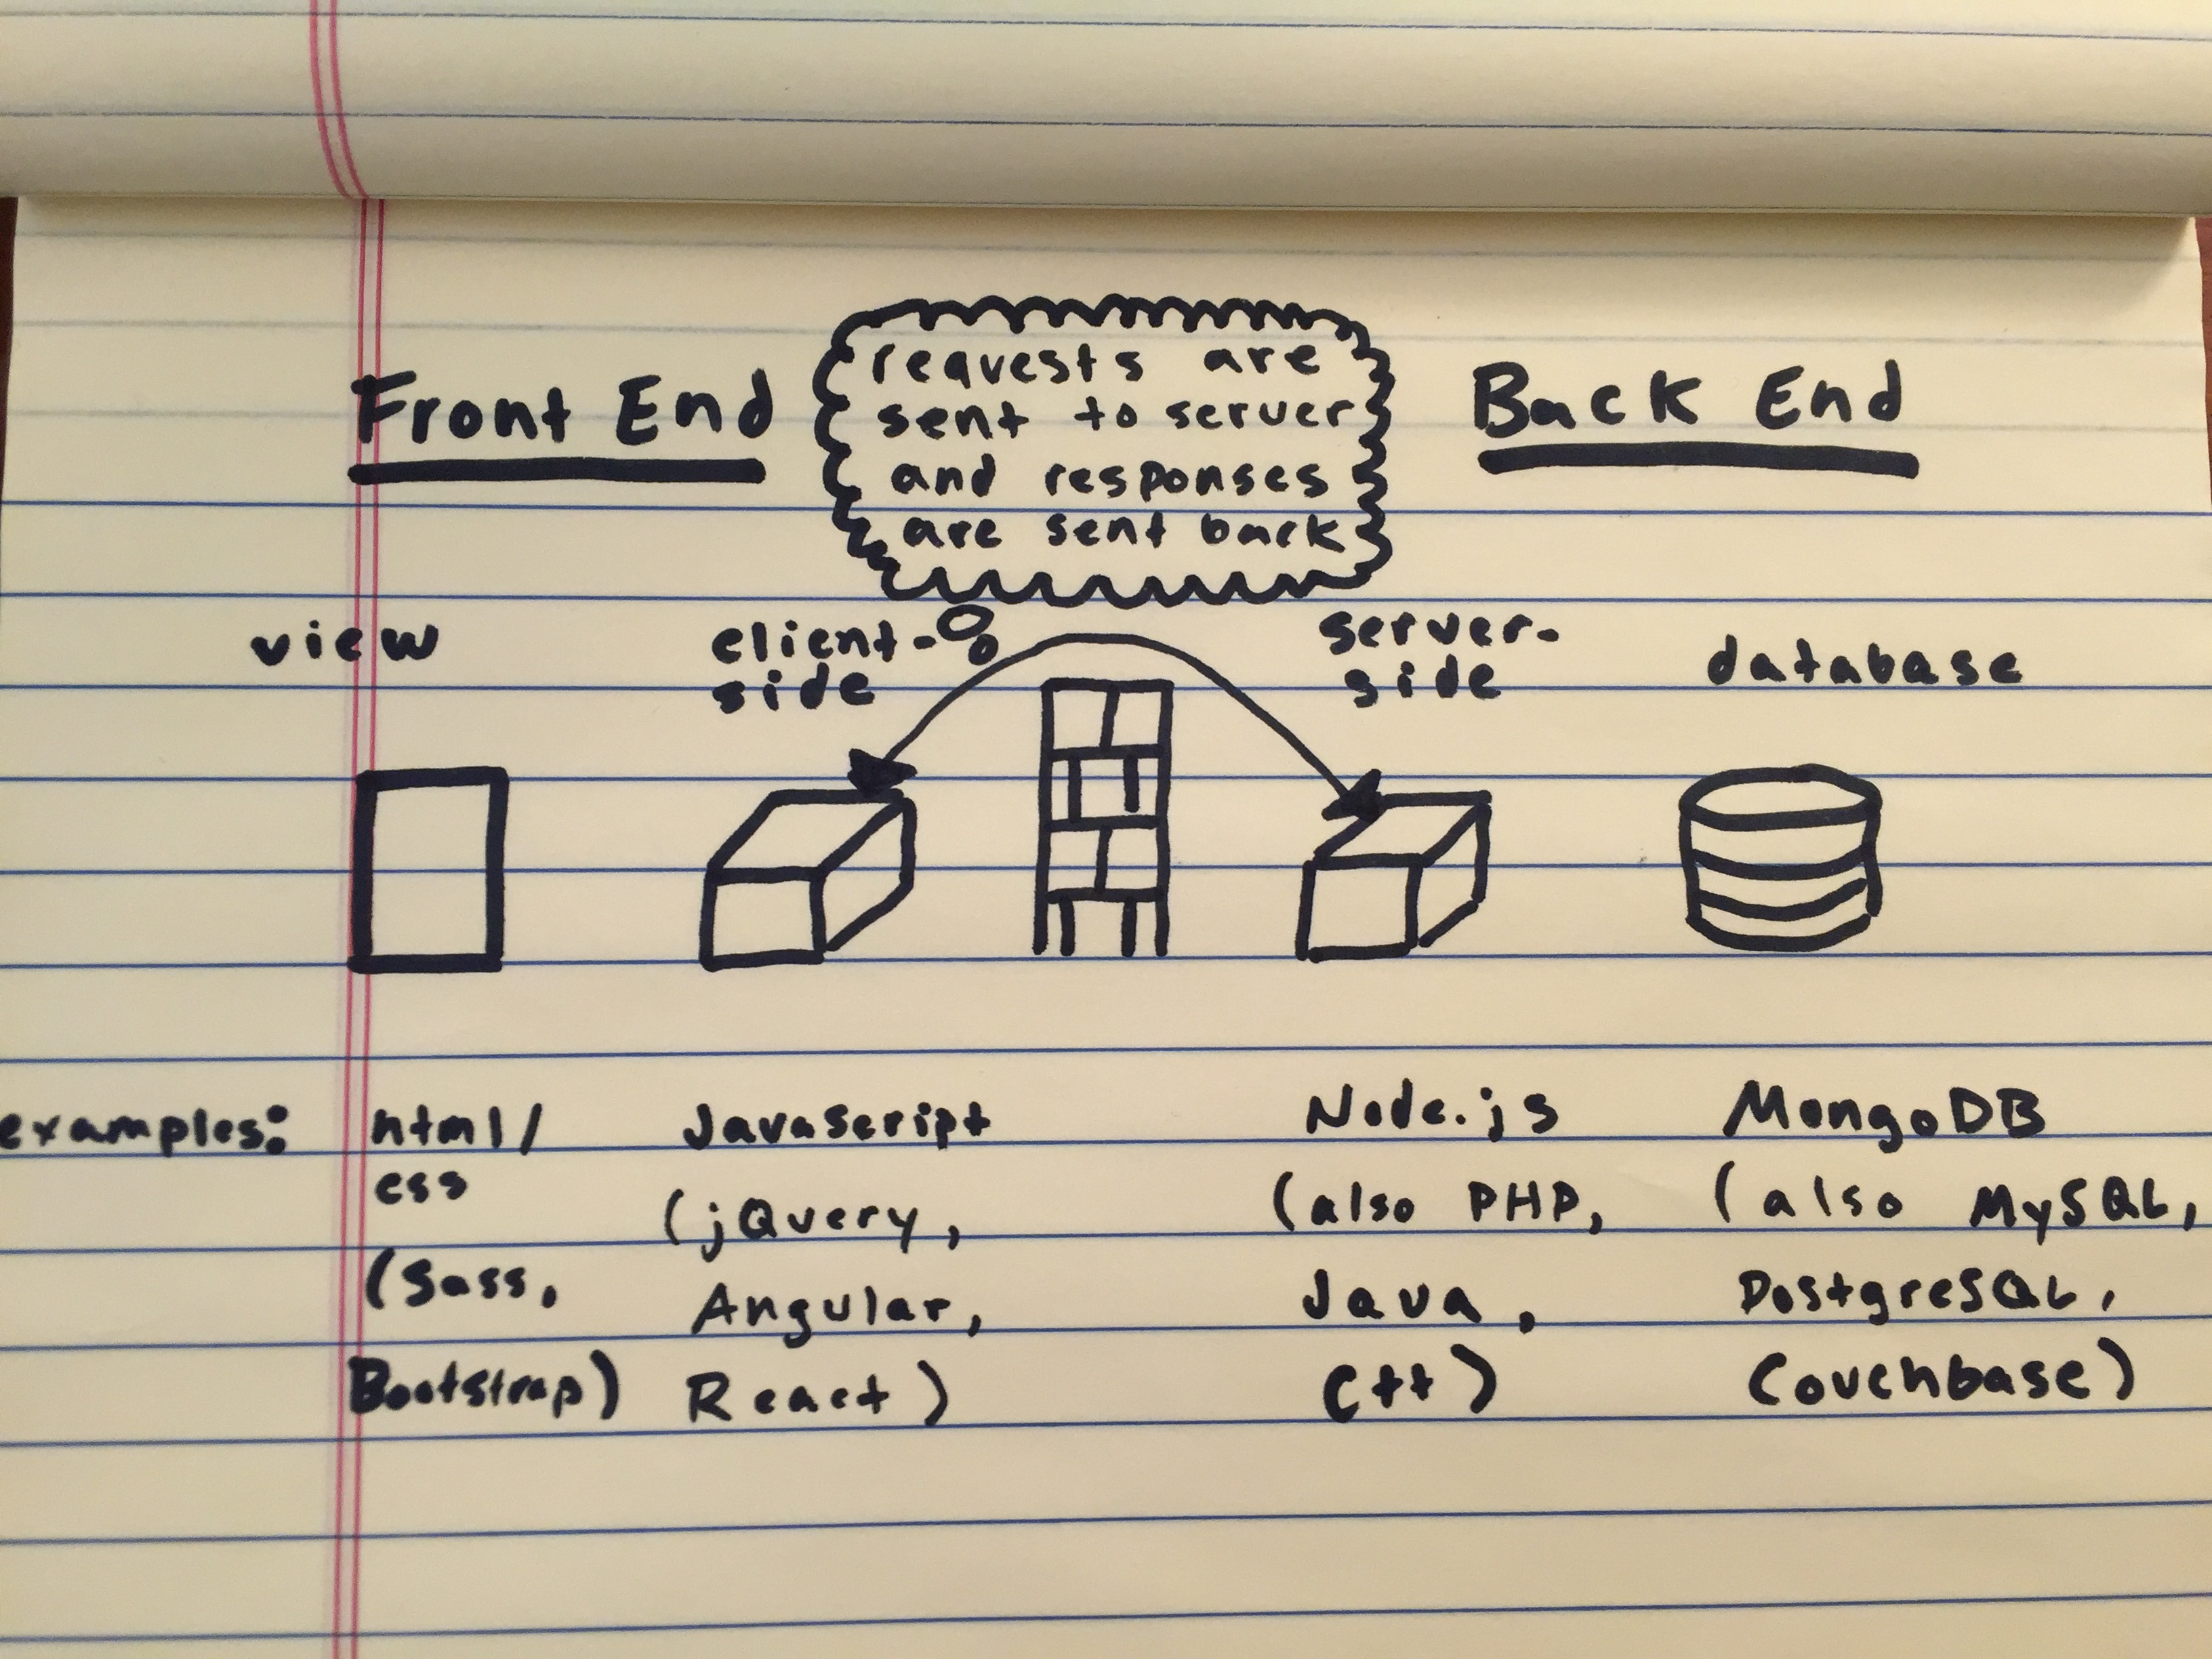 Front End
requests are
sent to server
and responses
are sent back
Back End
view
client-
side
server-
side
database
examples:
html/
css
(Sass,
Bootstrap)
Javascript
(jQuery,
Angular,
React)
Node.js
(also PHP,
Java,
C++)
MongoDB
(also MySQL,
PostgreSQL,
Couchbase)